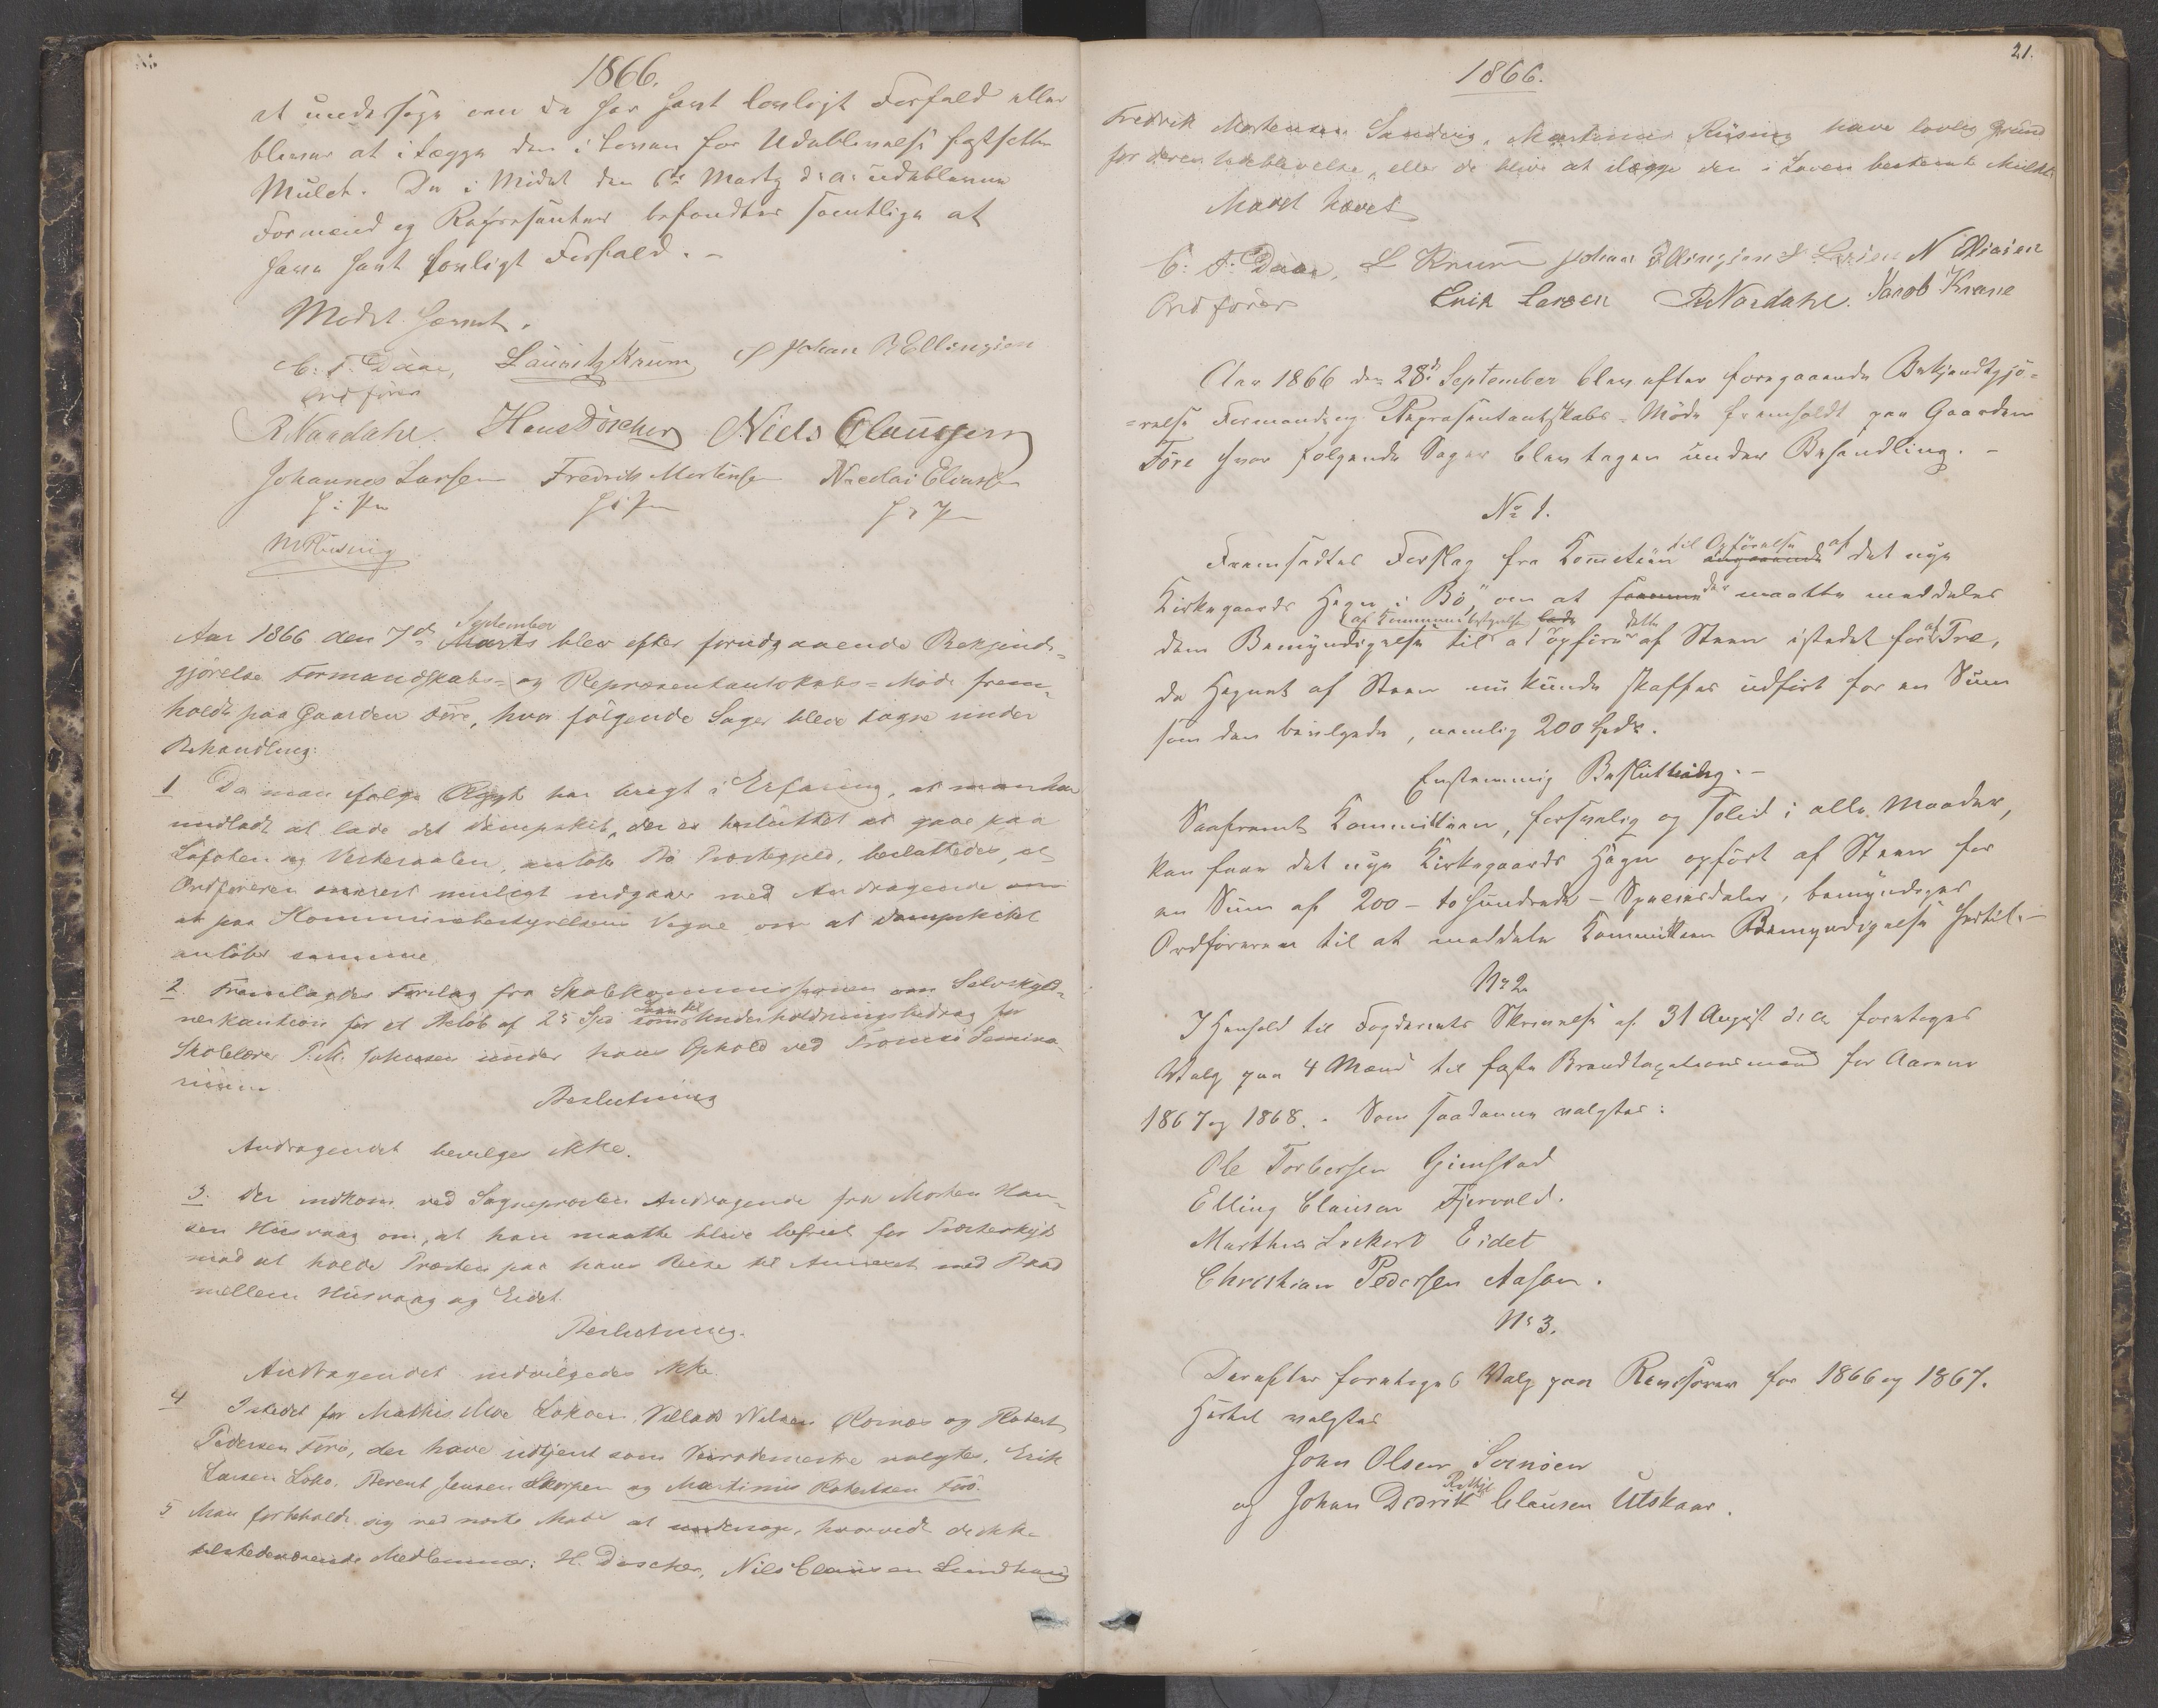 1866.
at undersøge om de har havt lovligt Forfald eller
bliver at ilægge den i Loven for Udeblivelse fastsatte
Mulct. De i Mødet den 6te Marts d: a: udeblevne
Formænd og Repræsentanter befandtes samtlige at
have havt lovligt Forfald. –
Mødet hævet.
C: F: Daae, Lauritz Krum Johan B Ellingsen
Ordfører
R Nordahl. Hans Döscher Niels Claussen
Johannes Larsen Fredrik Mortensen Nicolai Eliasen
M Riising
September
Aar 1866 den 7de Marts blev efter forudgaaende Bekjendt-
gjørelse Formandskabs- og Repræsentantskabs-Møde frem-
holdt paa Gaarden Føre, hvor følgende Sager bleve tagne under
Behandling:
1 Da man ifølge Rygte har bragt i Erfaring, at man har
undladt at lade det Dampskib, der er besluttet at gaae paa
Lofoten og Vesteraalen, anløbe Bø Præstegjeld, besluttedes, at
Ordføreren snarest muligt indgaaer med Andragende om
at paa Kommunebestyrelsens Vegne om at Dampskibet
anløber samme.
2. Fremlagdes Forslag fra Skolekommissionen om Selvskyld-
nerkaution for et Beløb af 25 Spd som Laan til Underholdningsbidrag for
Skolelærer P. N. Johnsen under hans Ophold ved Tromsø Semina-
rium.
Beslutning
Andragendet bevilges ikke.
3. Der indkom ved Sognepræsten Andragende fra Morten Han-
sen Huusvaag om, at han maatte blive befriet for Præsteskyds
mod at holde Præsten paa hans Reise til Annexet med Baad
mellem Husvaag og Eidet.
Beslutning.
Andragendet indvilgedes ikke.
4 Istedet for Mathis Moe Lokøen, Villads Nilsen Ramnæs og Robert
Pedersen Føre, der have udtjent som Veirodemestre valgtes, Erik
Larsen Lokø, Berent Jensen Skorpen og Martinus Robertsen Føre.
5 Man forbeholdt sig ved næste Møde at undersøge, hvorvidt de ikke
tilstedeværende Medlemmer: H. Døscher, Nils Clausen Sundhaug
21.
1866.
Fredrik Mortensen Sandvig, Martinus Riising have lovlig Grund
for deres Udeblivelse, eller de blive at ilægge den i Loven bestemte Mulkt.
Mødet hævet
C: F: Daae, L Krum Johan Ellingsen J. Larsen N Eliasen
Ordfører Erik Larsen R Nordahl. Jacob Krane
Aar 1866 den 28de September blev efter foregaaende Bekjendtgjø-
=relse Formands og Repræsentantskabs-Møde fremholdt paa Gaarden
Føre hvor følgende Sager blev tagen under Behandling. –
No 1.
Fremsattes Forslag fra Kometeen angaaende til Opførelse af det nye
Kirkegaards Hegn i Bø, om at samme der maatte meddeles
dem Bemyndigelse af Kommunebestyrelsen til at lade dette opføre af Steen istedet for af Træ,
da Hegnet af Steen nu kunde skaffes udført for en Sum
som den bevilgede, nemlig 200 Spdr.
Enstemmig Beslutning. –
Saafremt Kommitteen, forsvarlig og solid i alle Maader,
kan faae det nye Kirkegaards Hegn opført af Steen for
en Sum af 200 – to hundrede – Speciesdaler, bemyndiges
Ordføreren til at meddele Kommitteen Bemyndigelse hertil. –
No 2
I Henhold til Fogderiets Skrivelse af 31 August d. A. foretoges
Valg paa 4 Mænd til faste Brandtaxationsmænd for Aarene
1867 og 1868. – Som saadanne valgtes:
Ole Torbersen Gimstad
Elling Clausen Fjærvold.
Marthin Lockert Eidet
Christian Pedersen Aasan.
No 3.
Derefter foretoges Valg paa Revisorer for 1866 og 1867.
Hertil valgtes
John Olsen
og Johan Didrik Clausen Utskaar.